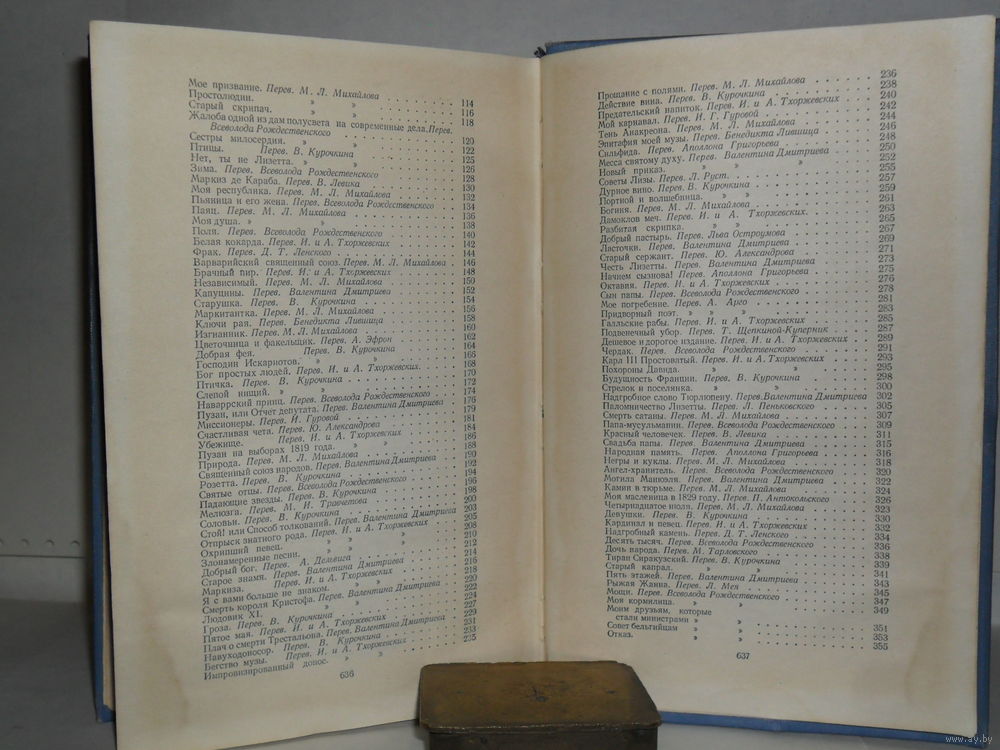 Мое призвание. Перев. М. Л. Михайлова 114
Простолюдин. » » 116
Старый скрипач. » » 118
Жалоба одной из дам полусвета на современные дела. Перев.
Всеволода Рождественского 120
Сестры милосердия. » » 122
Птицы. Перев. В. Курочкина 124
Нет, ты не Лизетта. » » 125
Зима. Перев. Всеволода Рождественского 126
Маркиз де Караба. Перев. В. Левика 128
Моя республика. Перев. М. Л. Михайлова 130
Пьяница и его жена. Перев. Всеволода Рождественского 132
Паяц. Перев. М. Л. Михайлова 134
Моя душа. » » 136
Поля. Перев. Всеволода Рождественского 138
Белая кокарда. Перев. И. и А. Тхоржевских 140
Фрак. Перев. Д. Т. Ленского 142
Варварийский священный союз. Перев. М. Л. Михайлова 144
Брачный пир. Перев. И. и А. Тхоржевских 146
Независимый. Перев. М. Л. Михайлова 148
Капуцины. Перев. Валентина Дмитриева 150
Старушка. Перев. В. Курочкина 152
Маркитантка. Перев. М. Л. Михайлова 154
Ключи рая. Перев. Бенедикта Лившица 156
Изгнанник. Перев. М. Л. Михайлова 158
Цветочница и факельщик. Перев. А. Эфрон 160
Добрая фея. Перев. В. Курочкина 162
Господин Искариотов. » » 164
Бог простых людей. Перев. И. и А. Тхоржевских. 166
Птичка. Перев. В. Курочкина 168
Слепой нищий. » » 170
Наваррский принц. Перев. Всеволода Рождественского 172
Пузан, или Отчет депутата. Перев. Валентина Дмитриева 174
Миссионеры. Перев. И. Гуровой 176
Счастливая чета. Перев. Ю. Александрова 179
Убежище. Перев. И. и А. Тхоржевских 181
Пузан на выборах 1819 года. 184
Природа. Перев. М. Л. Михайлова 186
Священный союз народов. Перев. Валентина Дмитриева 188
Розетта. Перев. В. Курочкина 190
Святые отцы. Перев. Всеволода Рождественского 192
Падающие звезды. Перев. В. Курочкина 194
Мелюзга. Перев. М. И. Травчетова 196
Соловьи. Перев. В. Курочкина 198
Стой! или Способ толкований. Перев. Валентина Дмитриева 200
Отпрыск знатного рода. Перев. И. и А. Тхоржевских 203
Охрипший певец. » » 205
Злонамеренные песни. » » 208
Добрый бог. Перев. А. Дельвига 210
Старое знамя. Перев. Валентина Дмитриева 212
Маркиза. Перев. И. и А. Тхоржевских 214
Я с вами больше не знаком. » » 216
Смерть короля Кристофа. Перев. Валентина Дмитриева 218
Людовик XI. » » 220
Гроза. Перев. В. Курочкина 222
Пятое мая. Перев. И. и А. Тхоржевских 224
Плач о смерти Трестальона. Перев. Валентина Дмитриева 227
Навуходоносор. Перев. В. Курочкина 229
Бегство музы. Перев. И. и А. Тхоржевских 231
Импровизированный донос. » » 233
235
636
Прощание с полями. Перев. М. Л. Михайлова 236
Действие вина. Перев. В. Курочкина 238
Предательский напиток. Перев. И. и А. Тхоржевских 240
Мой карнавал. Перев. И. Г. Гуровой 242
Тень Анакреона. Перев. М. Л. Михайлова 244
Эпитафия моей музы. Перев. Бенедикта Лившица 246
Сильфида. Перев. Аполлона Григорьева 248
Месса святому духу. Перев. Валентина Дмитриева 250
Новый приказ. » » 252
Советы Лизы. Перев. Л. Руст. 255
Дурное вино. Перев. В. Курочкина 257
Портной и волшебница. » » 259
Богиня. Перев. М. Л. Михайлова 261
Дамоклов меч. Перев. И. и А. Тхоржевских. 263
Разбитая скрипка. » » 265
Добрый пастырь. Перев. Льва Остроумова 267
Ласточки. Перев. Валентина Дмитриева 269
Старый сержант. Перев. Ю. Александрова 271
Честь Лизетты. Перев. Валентина Дмитриева 273
Начнем сызнова! Перев. Аполлона Григорьева 275
Октавия. Перев. И. и А. Тхоржевских 276
Сын папы. Перев. Всеволода Рождественского 278
Мое погребение. Перев. А. Арго 281
Придворный поэт. » » 283
Галльские рабы. Перев. И. и А. Тхоржевских 285
Подвенечный убор. Перев. Т. Щепкиной-Куперник 287
Дешевое и дорогое издание. Перев. И. и А. Тхоржевских 289
Чердак. Перев. Всеволода Рождественского 291
Карл III Простоватый. Перев. И. и А. Тхоржевских 293
Похороны Давида. » » 295
Будущность Франции. Перев. В. Курочкина 298
Стрелок и поселянка. » » 300
Надгробное слово Тюрлюпену. Перев. Валентина Дмитриева 302
Паломничество Лизетты. Перев. Л. Пеньковского 305
Смерть сатаны. Перев. М. Л. Михайлова 307
Папа-мусульманин. Перев. Всеволода Рождественского 309
Красный человечек. Перев. В. Левика 311
Свадьба папы. Перев. Валентина Дмитриева 315
Народная память. Перев. Аполлона Григорьева 316
Негры и куклы. Перев. М. Л. Михайлова 318
Ангел-хранитель. Перев. Всеволода Рождественского 320
Могила Манюэля. Перев. Валентина Дмитриева 322
Камин в тюрьме. Перев. М. Л. Михайлова 324
Моя масленица в 1829 году. Перев. П. Антокольского 326
Четырнадцатое июля. Перев. М. Л. Михайлова 323
Девушки. Перев. В. Курочкина 330
Кардинал и певец. Перев. И. и А. Тхоржевских 332
Надгробный камень. Перев. Д. Т. Ленского 334
Десять тысяч. Перев. Всеволода Рождественского 336
Дочь народа. Перев. М. Тарловского 338
Тиран Сиракузский. Перев. В. Курочкина 339
Старый капрал. » » 341
Пять этажей. Перев. Валентина Дмитриева 343
Рыжая Жанна. Перев. Л. Мея 345
Мощи. Перев. Всеволода Рождественского 347
Моя кормилица. » » 349
Моим друзьям, которые
стали министрами » » 351
Совет бельгийцам » » 353
Отказ. » » 355
637
www.ay.by